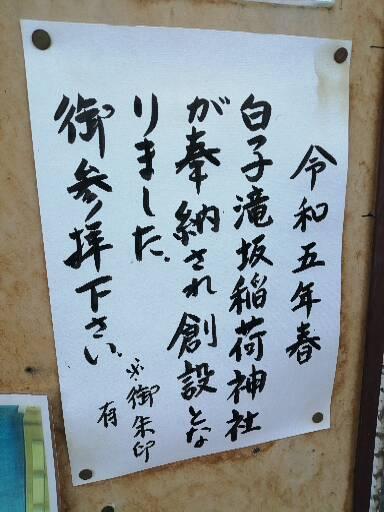 令和五年春
白子滝坂稲荷神社
が奉納され創設とな
りました。
御参拝下さい。
※御朱印
有